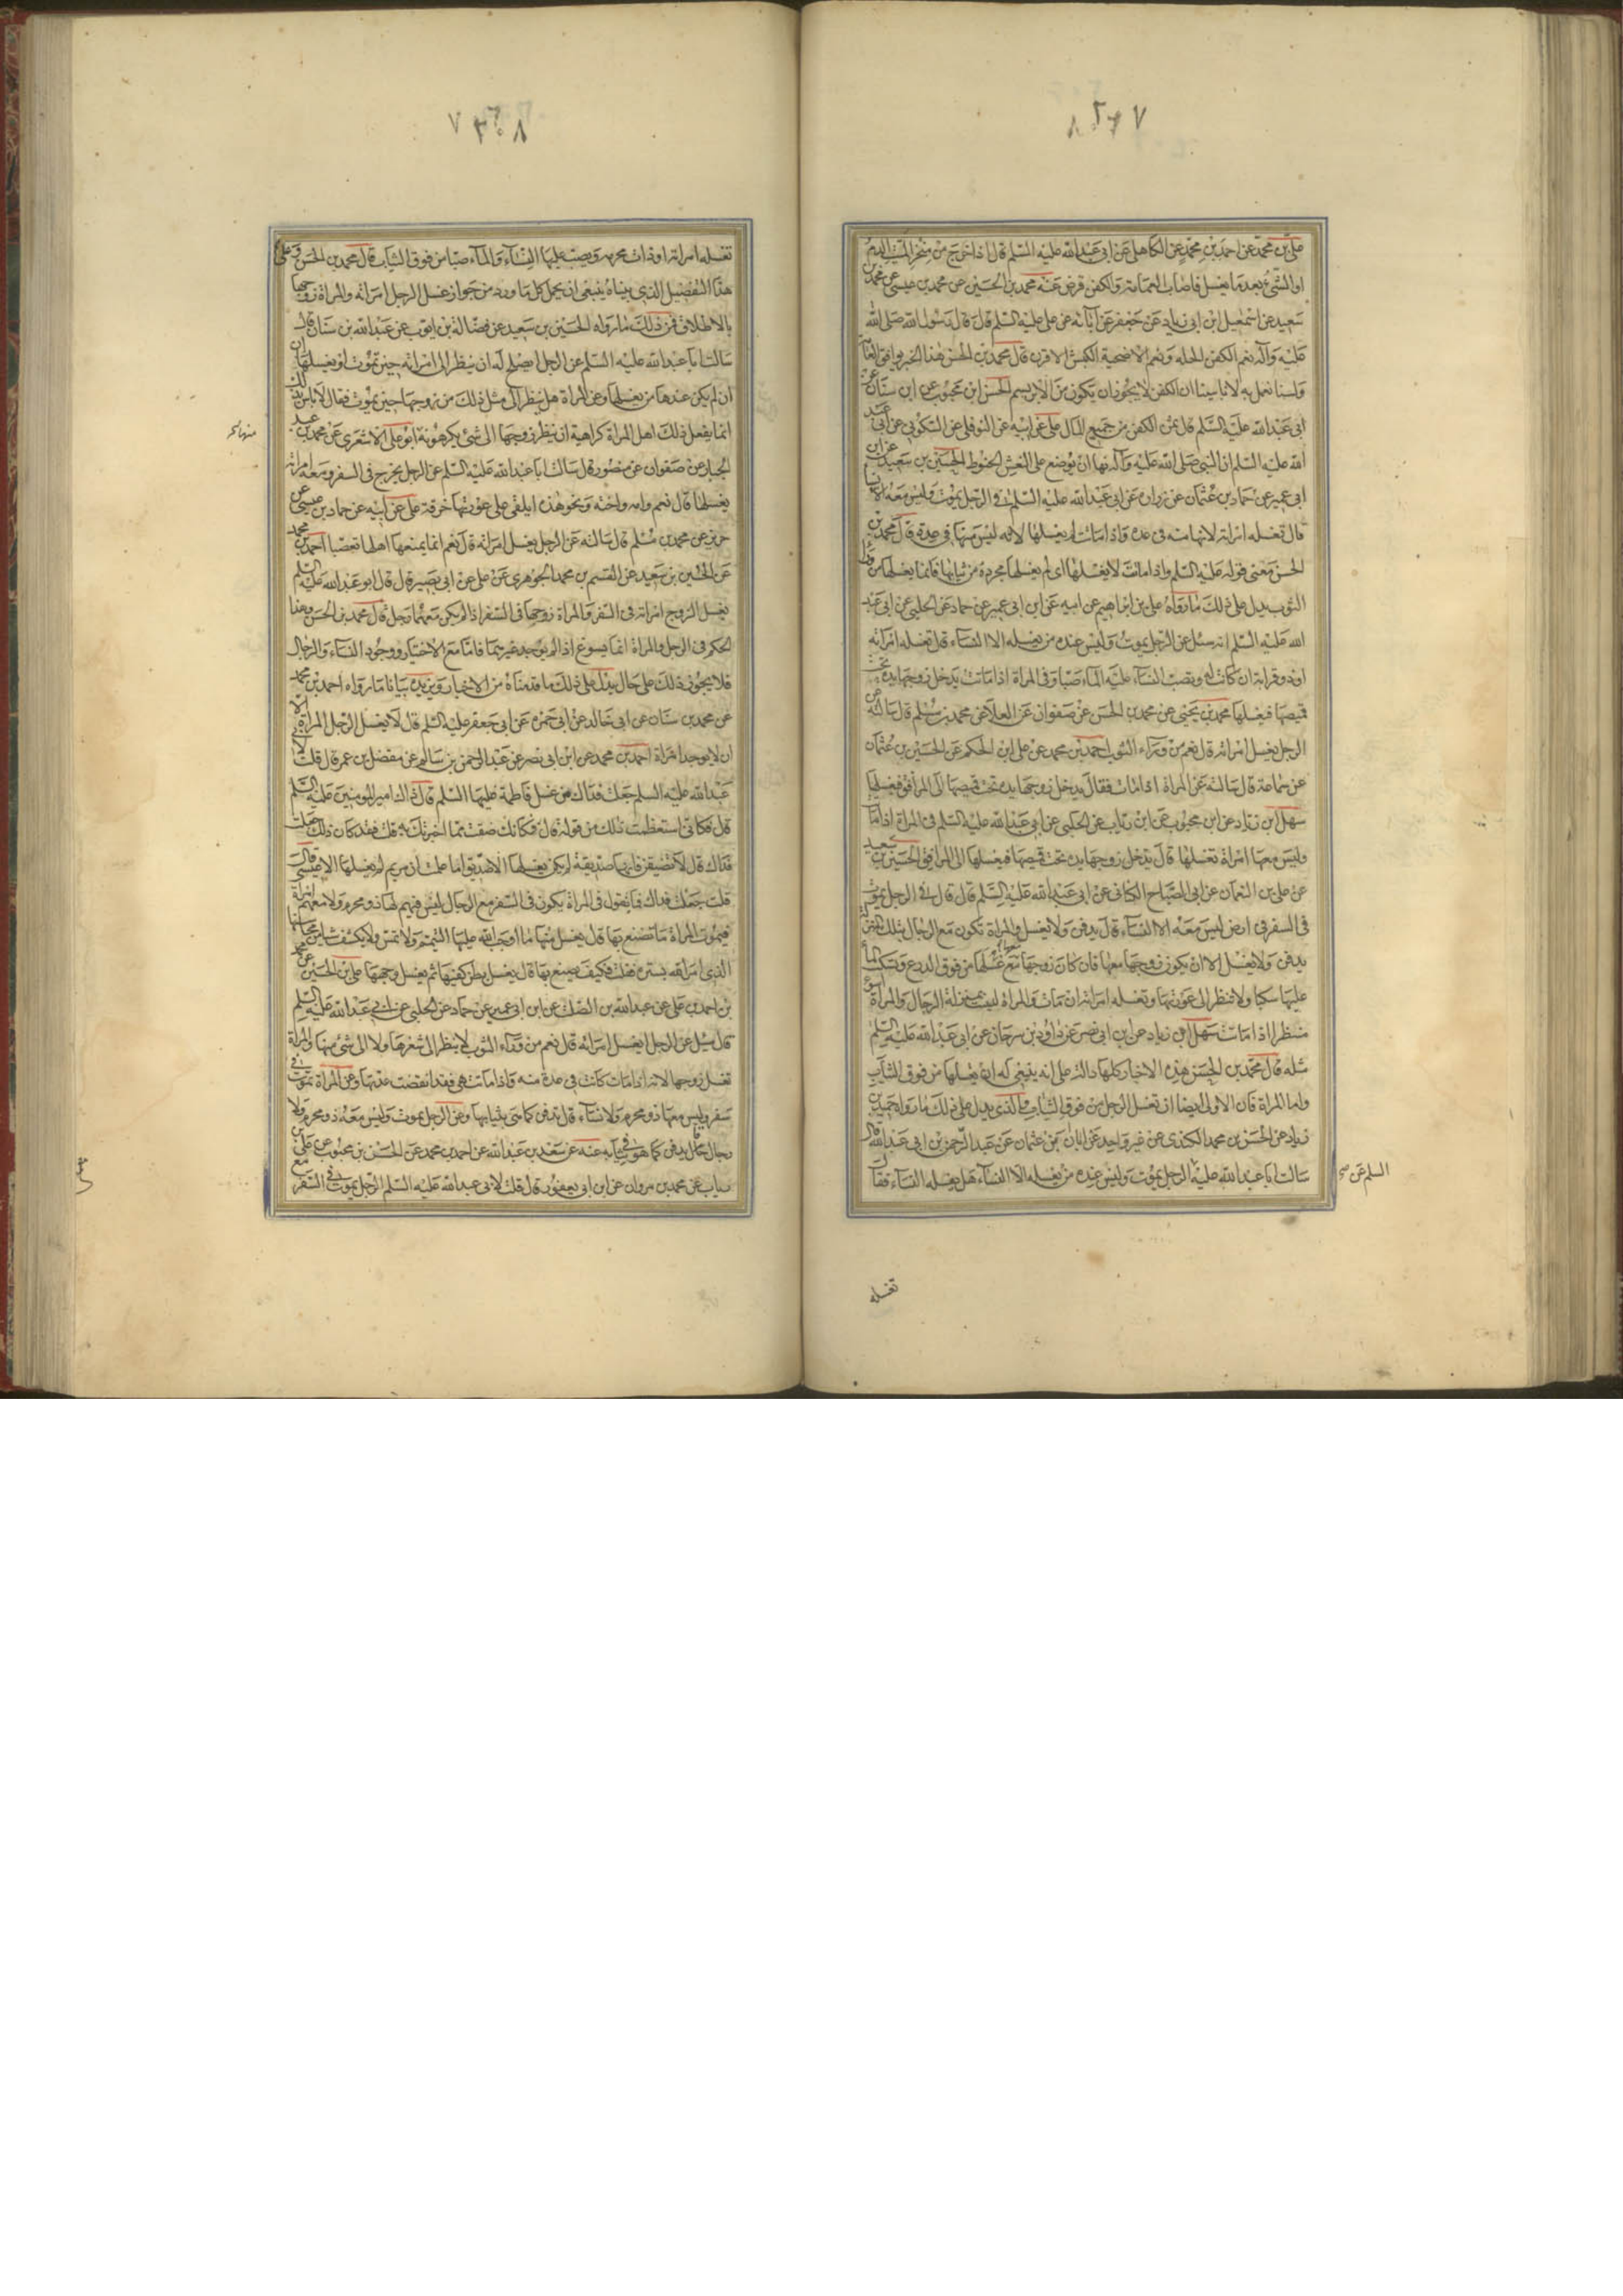 علي بن محمد عن احمد بن محمد عن الكاهلي عن ابي عبد الله عليه السلم قال اذا خرج من منخر الميت الدم
او الشيء بعد ما يغسل فاصاب العمامة والكفن قرض عنه محمد بن الحسين عن محمد بن عيسى عن محمد بن
سعيد عن اسمعيل ابن ابي زياد عن جعفر عن آبائه عن علي عليه السلم قال قال رسول الله صلى الله
عليه وآله نعم الكفن الحله ونعم الاضحية الكبش الاقرن قال محمد بن الحسن هذا الخبر يوافق العامه
ولسنا نعمل به لانا بينا ان الكفن لا يجوز ان يكون من الابريسم الحسن ابن محبوب عن ابن سنان عن
ابي عبد الله عليه السلم قال ثمن الكفن من جميع المال علي عن ابيه عن النوفلي عن السكوني عن ابي عبد
الله عليه السلم ان النبي صلى الله عليه وآله نهى ان يوضع على النعش الحنوط الحسين بن سعيد عن ابن
ابي عمير عن حماد بن عثمان عن زرارة عن ابي عبد الله عليه السلم في الرجل يموت وليس معه الا نساء
قال تغسله امراته لانها منه في عدة واذا ماتت لم يغسلها لانه ليس منها في عدة قال محمد بن
الحسن معنى قوله عليه السلم واذا ماتت لا يغسلها اي لم يغسلها مجردة من ثيابها فانما يغسلها من وراء
الثوب يدل على ذلك ما رواه علي بن ابراهيم عن ابيه عن ابن ابي عمير عن حماد عن الحلبي عن ابي عبد
الله عليه السلم انه سئل عن الرجل يموت وليس عنده من يغسله الا النساء قال تغسله امراته
او ذو قرابة ان كانت له ويصب النساء عليه الماء صبا وفي المراة اذا ماتت يدخل زوجها يده تحت
قميصها فيغسلها محمد بن يحيى عن محمد بن الحسن عن صفوان عن العلا عن محمد بن مسلم قال سالته عن
الرجل يغسل امراته قال نعم من وراء الثوب احمد بن محمد عن علي ابن الحكم عن الحسين بن عثمان
عن سماعة قال سالته عن المراة اذا ماتت فقال يدخل زوجها يده تحت قميصها الى المرافق فيغسلها
سهل ابن زياد عن ابن محبوب عن ابن رئاب عن الحلبي عن ابي عبد الله عليه السلم في المراة اذا ماتت
وليس معها امراة تغسلها قال يدخل زوجها يده تحت قميصها فيغسلها الى المرافق الحسين بن سعيد
عن علي بن النعمان عن ابي الصباح الكناني عن ابي عبد الله عليه السلم قال قال في الرجل يموت
في السفر في ارض ليس معه الا النساء قال يدفن ولا يغسل والمراة تكون مع الرجال بتلك المنزلة
تدفن ولا تغسل الا ان يكون زوجها معها فان كان زوجها معها غسلها من فوق الدرع ويسكب الماء
عليها سكبا ولا ينظر الى عورتها وتغسله امراته ان مات والمراة ليست بمنزلة الرجال والمراة اسوء
منظرا اذا ماتت سهل ابن زياد عن ابن ابي نصر عن داود بن سرحان عن ابي عبد الله عليه السلم
مثله قال محمد بن الحسن هذه الاخبار كلها دالة على انه ينبغي له ان يغسلها من فوق الثياب
واما المراة فان الاولى ايضا ان تغسل الرجل من فوق الثياب والذي يدل على ذلك ما رواه حميد بن
زياد عن الحسن بن محمد الكندي عن غير واحد عن ابان بن عثمان عن عبد الرحمن بن ابي عبد الله قال
سالت ابا عبد الله عليه الرجل يموت وليس عنده من يغسله الا النساء هل يغسله النساء فقال
السلم عن صح
تغسله
تغسله امراته او ذات محرمه ويصب عليها النساء والماء صبا من فوق الثياب قال محمد بن الحسن وعلى
هذا التفصيل الذي بيناه ينبغي ان يحمل كل ما ورد من جواز غسل الرجل امراته والمراة زوجها
بالاطلاق فمن ذلك ما رواه الحسين بن سعيد عن فضالة بن ايوب عن عبد الله بن سنان قال
سالت ابا عبد الله عليه السلم عن الرجل ايصلح له ان ينظر الى امراته حين تموت او يغسلها ان
ان لم يكن عندها من يغسلها وعن المراة هل ينظر الى مثل ذلك من زوجها حين يموت فقال لا باس بذلك
انما يفعل ذلك اهل المراة كراهية ان ينظر زوجها الى شيء يكرهونه ابو علي الاشعري عن محمد بن عبد
الجبار عن صفوان عن منصور قال سالت ابا عبد الله عليه السلم عن الرجل يخرج في السفر ومعه امراته
يغسلها قال نعم وامه واخته ونحو هذه ايلقي على عورتها خرقة علي عن ابيه عن حماد بن عيسى عن
حريز عن محمد بن مسلم قال سالته عن الرجل يغسل امراته قال نعم انما يمنعها اهلها تعصبا احمد بن محمد
عن الحسين بن سعيد عن القسم بن محمد الجوهري عن علي عن ابي بصير قال قال ابو عبد الله عليه السلم
يغسل الزوج امراته في السفر والمراة زوجها في السفر اذا لم يكن معهما رجل قال محمد بن الحسن وهذا
الحكم في الرجل والمراة انما يسوغ اذا لم يوجد غيرهما فاما مع الاختيار ووجود النساء والرجال
فلا يجوز ذلك على حال يدل على ذلك ما قدمناه من الاخبار ويزيده بيانا ما رواه احمد بن محمد
عن محمد بن سنان عن ابي خالد عن ابي حمزة عن ابي جعفر عليه السلم قال لا يغسل الرجل المراة الا
ان لا يوجد امراة احمد بن محمد عن ابن ابي نصر عن عبد الرحمن بن سالم عن مفضل بن عمر قال قلت لابي
عبد الله عليه السلم جعلت فداك من غسل فاطمة عليها السلم قال ذاك امير المومنين عليه السلم
قال فكاني استعظمت ذلك من قوله قال فكانك ضقت مما اخبرتك به قلت فقد كان ذلك جعلت
فداك قال لا تضيقن فانها صديقة لم يكن يغسلها الا صديق اما علمت ان مريم لم يغسلها الا عيسى قال
قلت جعلت فداك فما تقول في المراة يكون في السفر مع الرجال ليس فيهم لها ذو محرم ولا معهم امراة
فيموت المراة ما تصنع بها قال يغسل منها ما اوجب الله عليها التيمم ولا تمس ولا يكشف شيا من محاسنها
الذي امر الله بستره فقلت فكيف يصنع بها قال يغسل بطن كفيها ثم يغسل وجهها علي ابن الحسين عن محمد
بن احمد بن علي عن عبد الله بن الصلت عن ابن ابي عمير عن حماد عن الحلبي عن ابي عبد الله عليه السلم
قال سئل عن الرجل يغسل امراته قال نعم من وراء الثوب لا ينظر الى شعرها ولا الى شئ منها والمراة
تغسل زوجها لانه اذا مات كانت في عدة منه فاذا ماتت هي فقد انقضت عدتها وعن المراة تموت في
سفر وليس معها ذو محرم ولا نساء قال تدفن كما هي بثيابها وعن الرجل يموت وليس معه ذو محرم ولا
رجال قال يدفن كما هو في ثيابه عنه عن سعد بن عبد الله عن احمد بن محمد عن الحسن بن محبوب عن علي بن
رياب عن محمد بن مروان عن ابن ابي يعفور قال قلت لابي عبد الله عليه السلم الرجل يموت في السفر مع